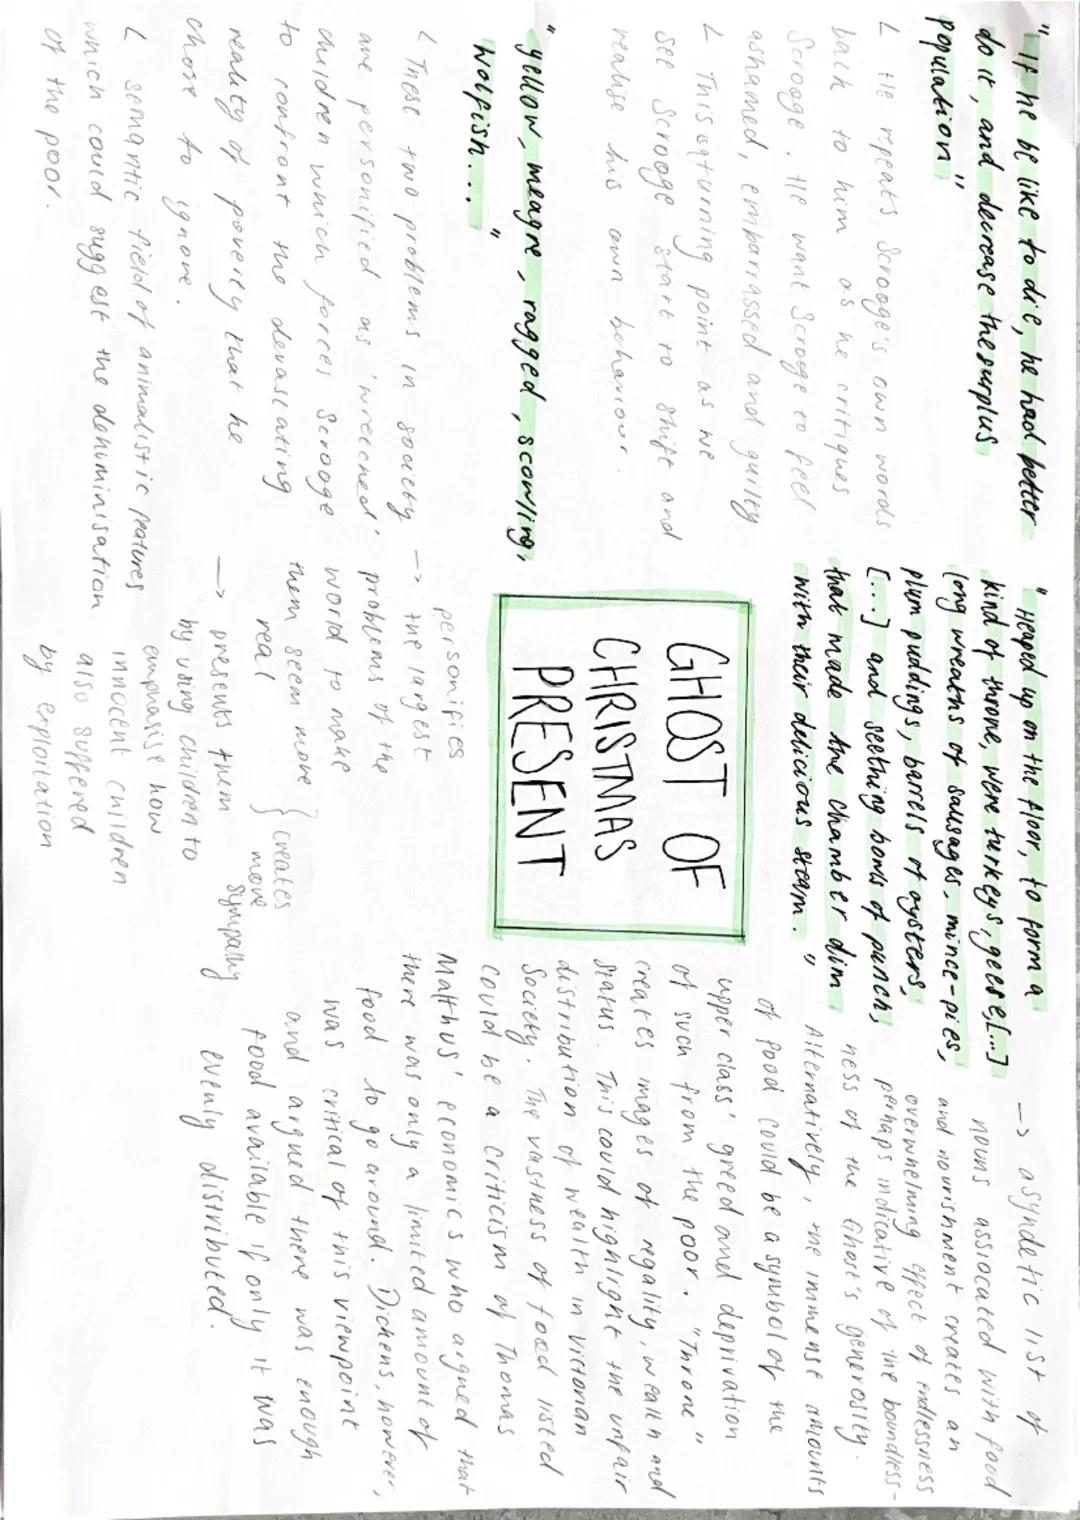 "If he be like to die, he had better
do it, and decrease the surplus
population"
L He repeats Scrooge's own words
back to him as he critiques
Scrooge. He want Scrooge to feel
ashamed, embarrassed and guilty
L This a turning point as we
see Scrooge start to shift and
realise his own behaviour.
"yellow, meagre, ragged, scowling,
wolfish..."
L These two problems in society
are personified as 'wreched'
children which forces Scrooge
to confront the devastating
reality of poverty that he
chose to ignore.
L semantic field of animalistic features
which could suggest the dehuminisation
of the poor.
"Heaped up on the floor, to form a
kind of throne, were turkeys, geese, [...]
long wreaths of sausages, mince-pies,
plum puddings, barrels of oysters,
[...] and seething bowls of punch,
that made the chamber dim
with their delicious steam."
GHOST OF
CHRISTMAS
PRESENT
personifies
-> the largest
problems of the
world to make
them seem more
real
} creates
more
sympathy
-> presents them
by using children to
emphasise how
innocent children
also suffered
by exploitation
-> asyndetic list of
nouns associated with food
and nourishment creates an
overwhelming effect of endlessness
perhaps indicative of the boundless-
ness of the Ghost's generosity.
Alternatively, the immense amounts
of food could be a symbol of the
upper class' greed and deprivation
of such from the poor. "Throne"
creates images of regality, wealth and
status. This could highlight the unfair
distribution of wealth in Victorian
Society. The vastness of food listed
could be a criticism of Thomas
Malthus' economics who argued that
there was only a limited amount of
food to go around. Dickens, however,
was critical of this viewpoint
and argued there was enough
food available if only it was
evenly distributed.